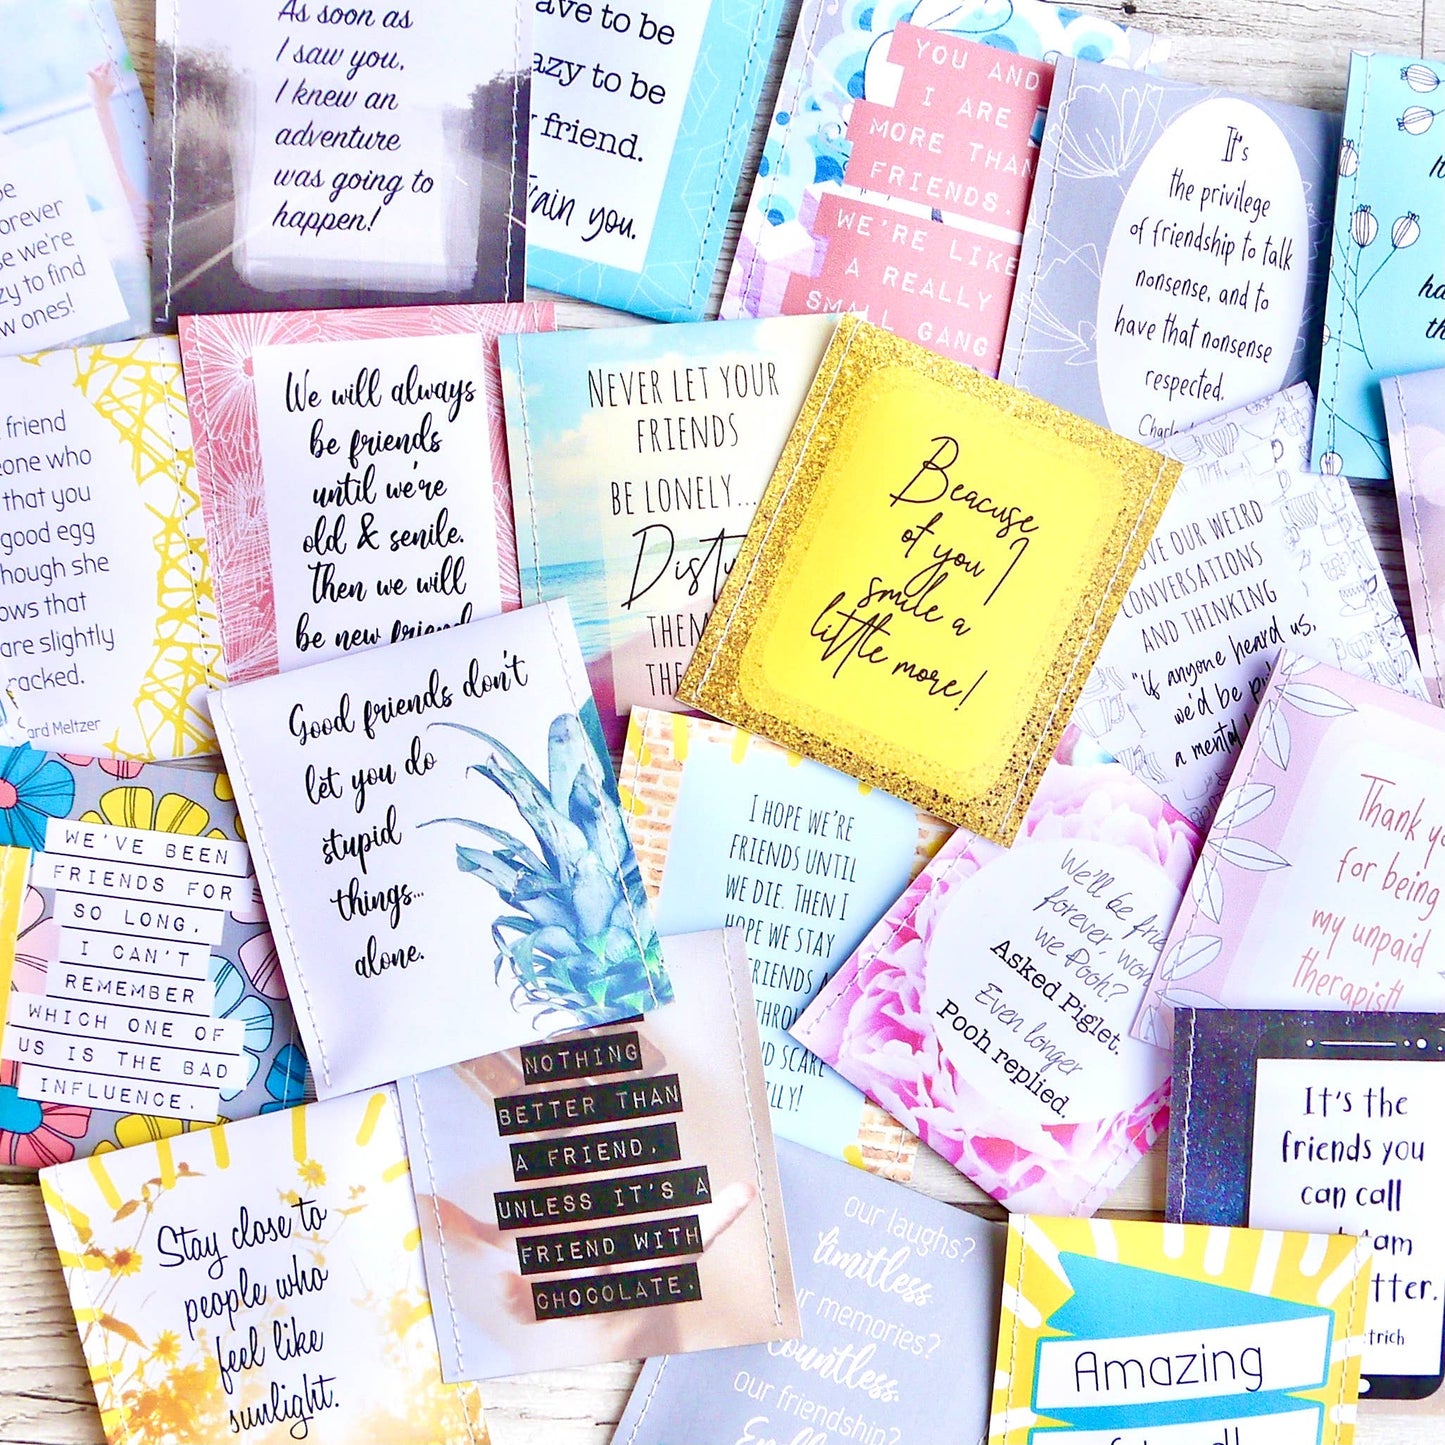 As soon as
I saw you,
I knew an
adventure
was going to
happen!
to be
to be
friend.
you.
YOU AND
I ARE
MORE THAN
FRIENDS.
WE'RE LIKE
A REALLY
SMALL GANG.
It's
the privilege
of friendship to talk
nonsense, and to
have that nonsense
respected.
we're
to find
ones!
friend
who
that you
good egg
she
that
are slightly
Meltzer
We will always
be friends
until we're
old & senile.
Then we will
be new
NEVER LET YOUR
FRIENDS
BE LONELY...
Beacuse
of you I
smile a
little more!
OUR WEIRD
CONVERSATIONS
AND THINKING
"if anyone heard us,
we'd be
a
Good friends don't
let you do
stupid
things...
alone.
I HOPE WE'RE
FRIENDS UNTIL
WE DIE. THEN I
HOPE WE STAY
FRIENDS
We'll be
forever, won't
we Pooh?
Asked Piglet.
Even longer
Pooh replied.
Thank
for being
my unpaid
therapist!
WE'VE BEEN
FRIENDS FOR
SO LONG,
I CAN'T
REMEMBER
WHICH ONE OF
US IS THE BAD
INFLUENCE.
NOTHING
BETTER THAN
A FRIEND,
UNLESS IT'S A
FRIEND WITH
CHOCOLATE.
It's the
friends you
can call
Stay close to
people who
feel like
sunlight.
our laughs?
limitless
memories?
countless.
our friendship?
Amazing